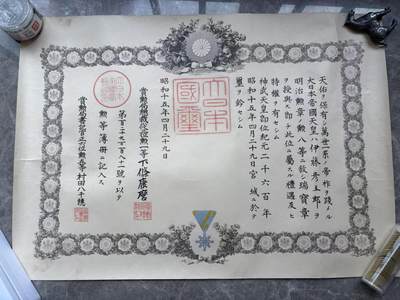 天佑ヲ保有シ萬世一系ノ帝祚ヲ踐メル
大日本帝國天皇ハ伊藤彦郎ヲ
明治勲章ノ勲八等ニ敍シ瑞寶章
ヲ授與ス即チ此位ニ屬スル禮遇及ヒ
特權ヲ有セシム
神武天皇即位紀元二千六百年
昭和十五年四月二十九日宮城ニ於テ
璽ヲ鈐セシム
大日本國璽
昭和十五年四月二十九日
賞勲局總裁從位勲一等下條康麿
第百二十百八十一號ヲ以テ
勲等簿冊ニ記入ス
賞勲局書記官正六位勲等村田八千穂